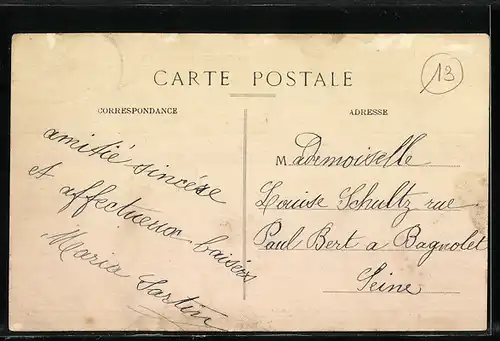 CARTE POSTALE
13
CORRESPONDANCE
amitié sincère
et affectueux baisers
Maria Sartin
ADRESSE
Mademoiselle
Louise Schultz rue
Paul Bert a Bagnolet
Seine